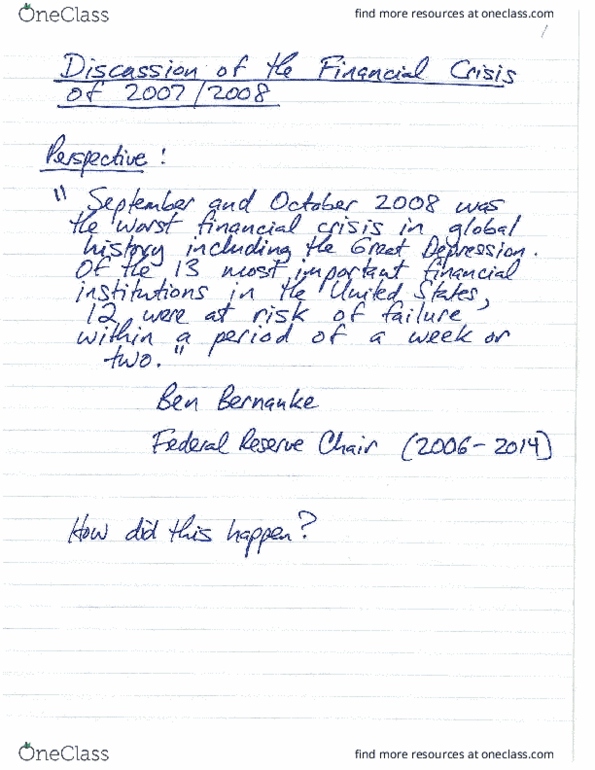 OneClass
find more resources at oneclass.com
1
Discussion of the Financial Crisis
of 2007/2008
Perspective:
"September and October 2008 was
the worst financial crisis in global
history including the Great Depression.
Of the 13 most important financial
institutions in the United States,
12 were at risk of failure
within a period of a week or
two."
Ben Bernanke
Federal Reserve Chair (2006-2014)
How did this happen?
OneClass
find more resources at oneclass.com